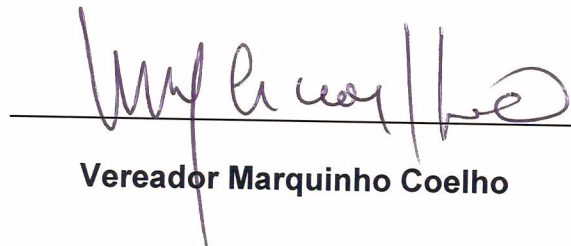 Vereador Marquinho Coelho